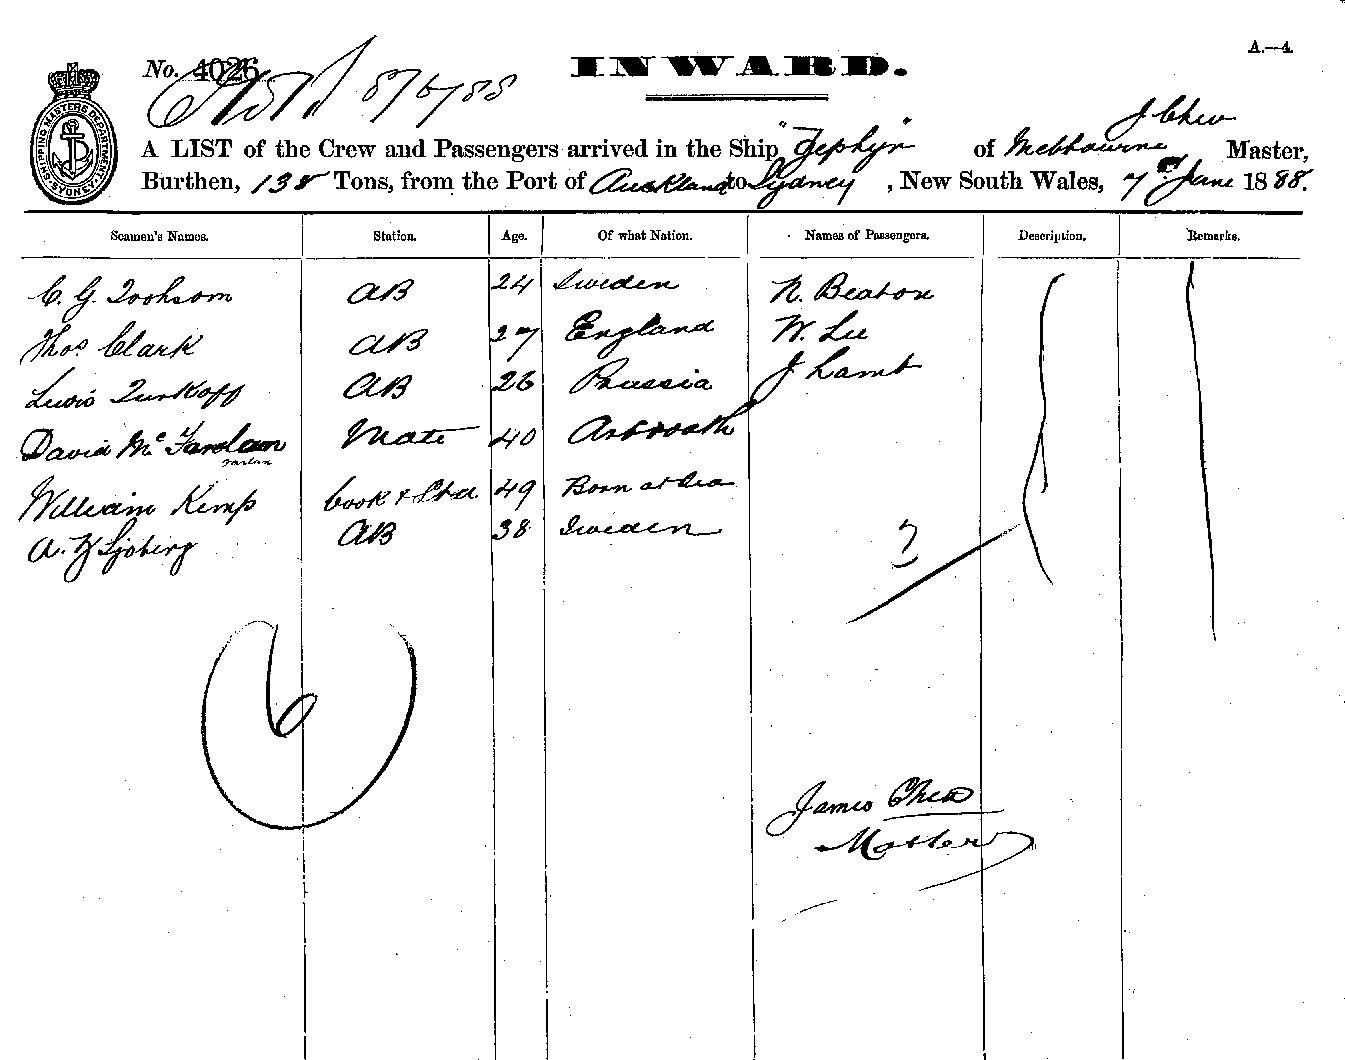 A.—4.
No. 4026 8/6/88
INWARD.
SHIPPING MASTERS DEPARTMENT SYDNEY
J Chew
A LIST of the Crew and Passengers arrived in the Ship "Zephyr" of Melbourne Master,
Burthen, 138 Tons, from the Port of Auckland to Sydney, New South Wales, 7th June 1888.
Seamen's Names. Station. Age. Of what Nation. Names of Passengers. Description. Remarks.
C. G. AB 24 Sweden N. Beaton
Thos Clark AB 27 England W. Lee
Lewis AB 26 Prussia J Lamb
David Mc Farlan Mate 40 Arbroath
Farlan
William Kemp Cook & Std 49 Born at Sea
A. Sjoberg AB 38 Sweden
6
James Chew
Master